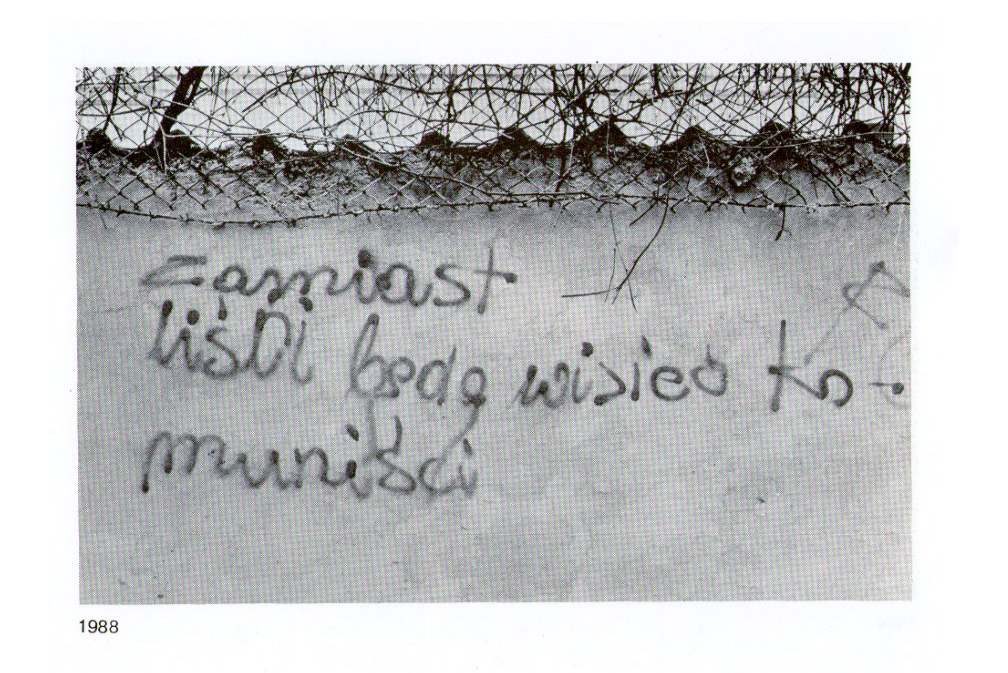 zamiast
liści będą wisieć ko-
muniści
1988